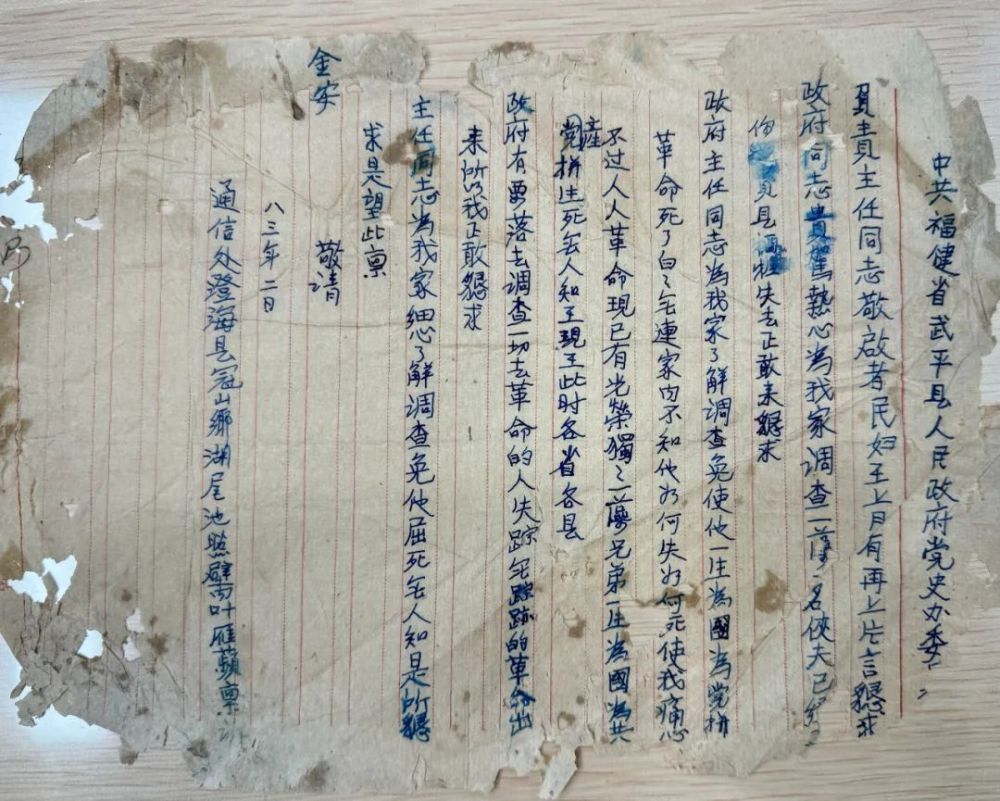 中共福健省武平县人民政府党史办委
負責主任同志敬啟者民妇王上月有再上片言懇求
政府同志熱心為我家调查一名俠夫已
份县失去正敢来懇求
政府主任同志為我家了解调查免使他一生為國為党拼
革命死了白々無連家内不知他如何失如何死使我痛心
不过人人革命現已有光榮獨々兄弟一生為國為共
產党拼生死無人知王現王此时各省各县
政府有要落去调查一切去革命的人失踪無踪跡的革命出
来所以我正敢懇求
主任同志為我家细心了解调查免他屈死無人知是所懇
求是望此稟
敬请
金安
八三年二日
通信处澄海县冠山鄉湖尾池照壁叶雁蘋稟